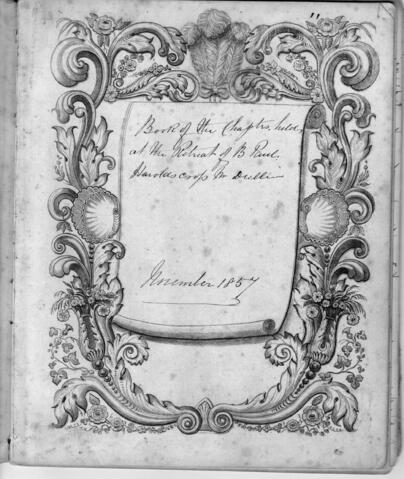 Book of the Chapters held,
at the Retreat of B Paul,
Haroldscross
November 1857